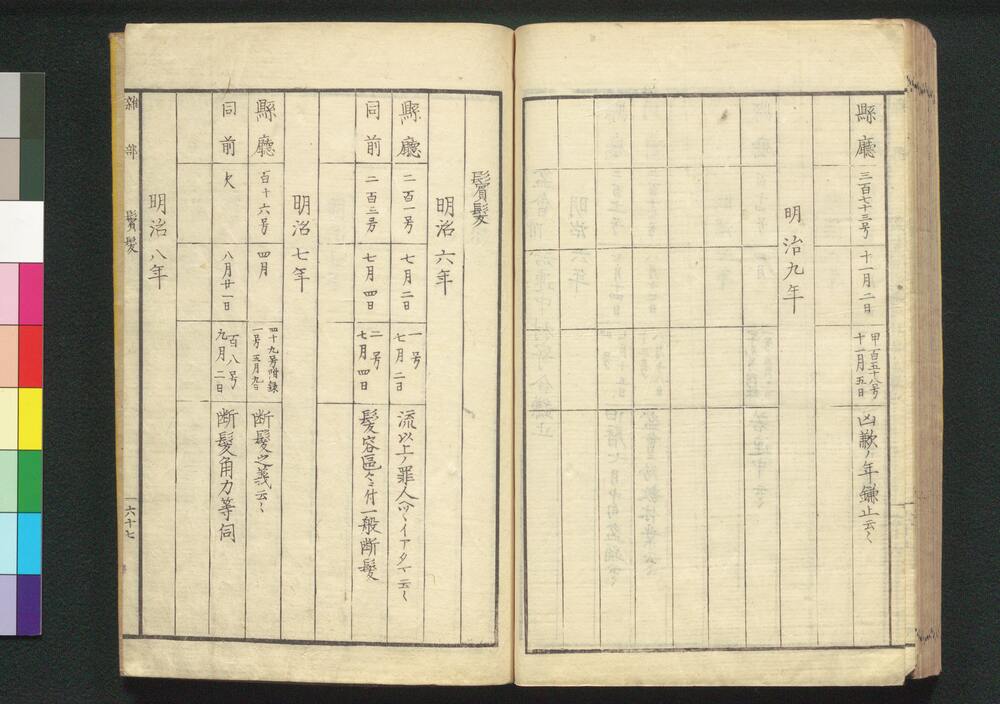 縣廳 三百七十三号 十一月二日 甲百五十八号 十一月五日 凶歉ノ年鎌止云〻
明治九年
鬢髪
明治六年
縣廳 二百一号 七月二日 一号 七月二日 流以上ノ罪人 云〻
同前 二百三号 七月四日 二号 七月四日 髪容區々ニ付一般断髪
明治七年
縣廳 百十六号 四月 四十九号附録 一号 五月九日 断髪之義云〻
同前 欠 八月廿一日 百八号 九月二日 断髪角力等伺
明治八年
雑部 鬢髪 六十七